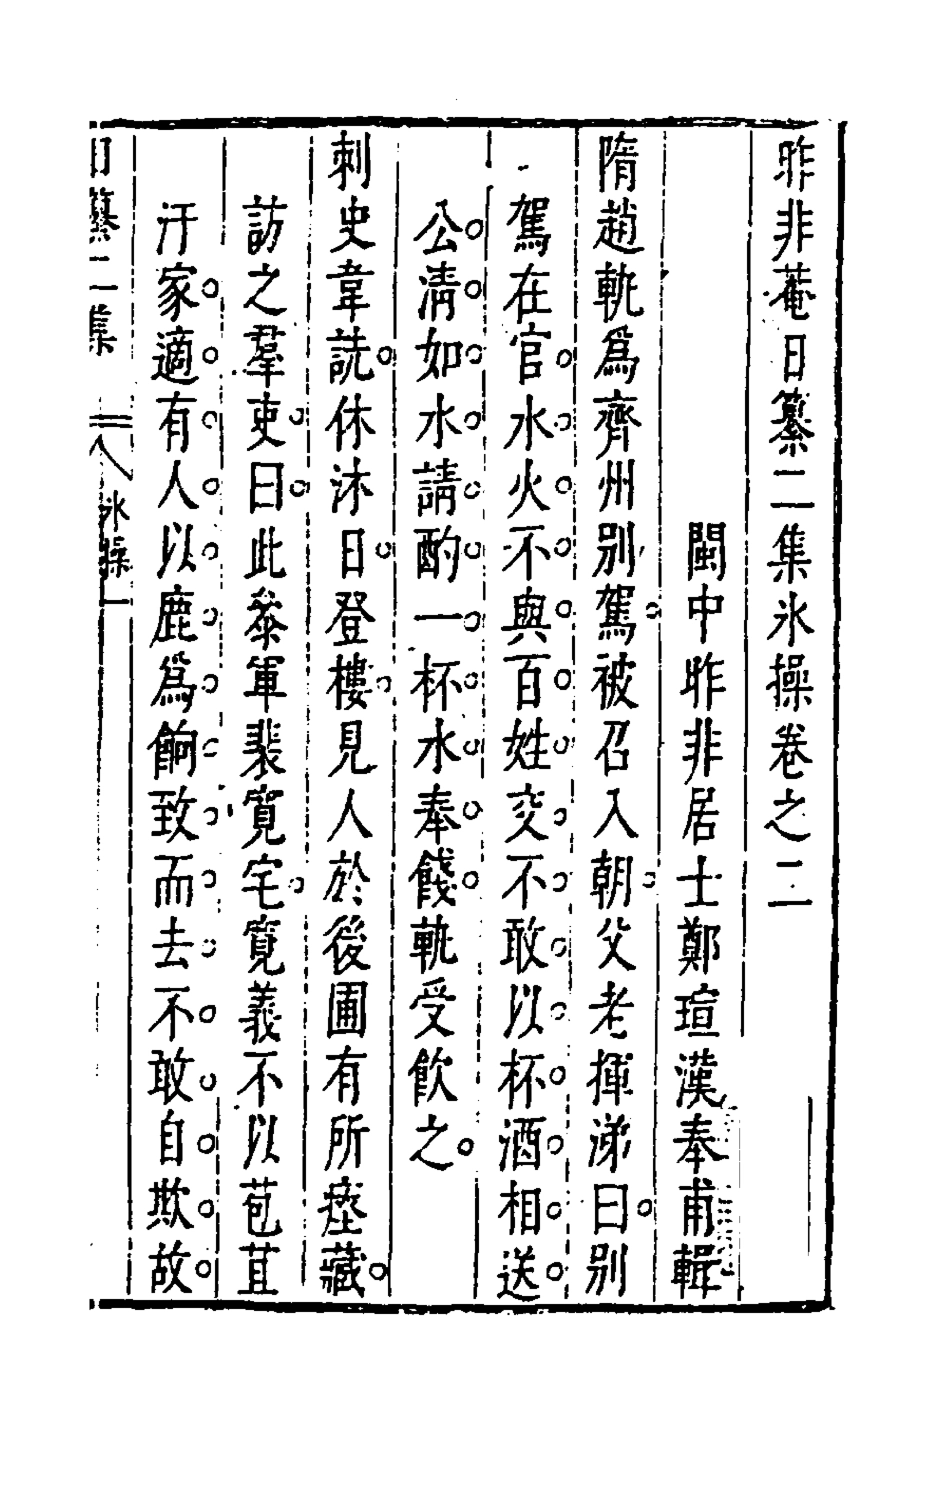 昨非菴日纂二集氷操卷之二
閩中昨非居士鄭瑄漢奉甫輯
隋趙軌爲齊州別駕被召入朝父老揮涕曰別
駕在官水火不與百姓交不敢以杯酒相送
公淸如水請酌一杯水奉餞軌受飮之
刺史韋詵休沐日登樓見人於後圃有所瘞藏
訪之羣吏曰此叅軍裴寬宅寬義不以苞苴
汙家適有人以鹿爲餉致而去不敢自欺故
日纂二集 氷操 一